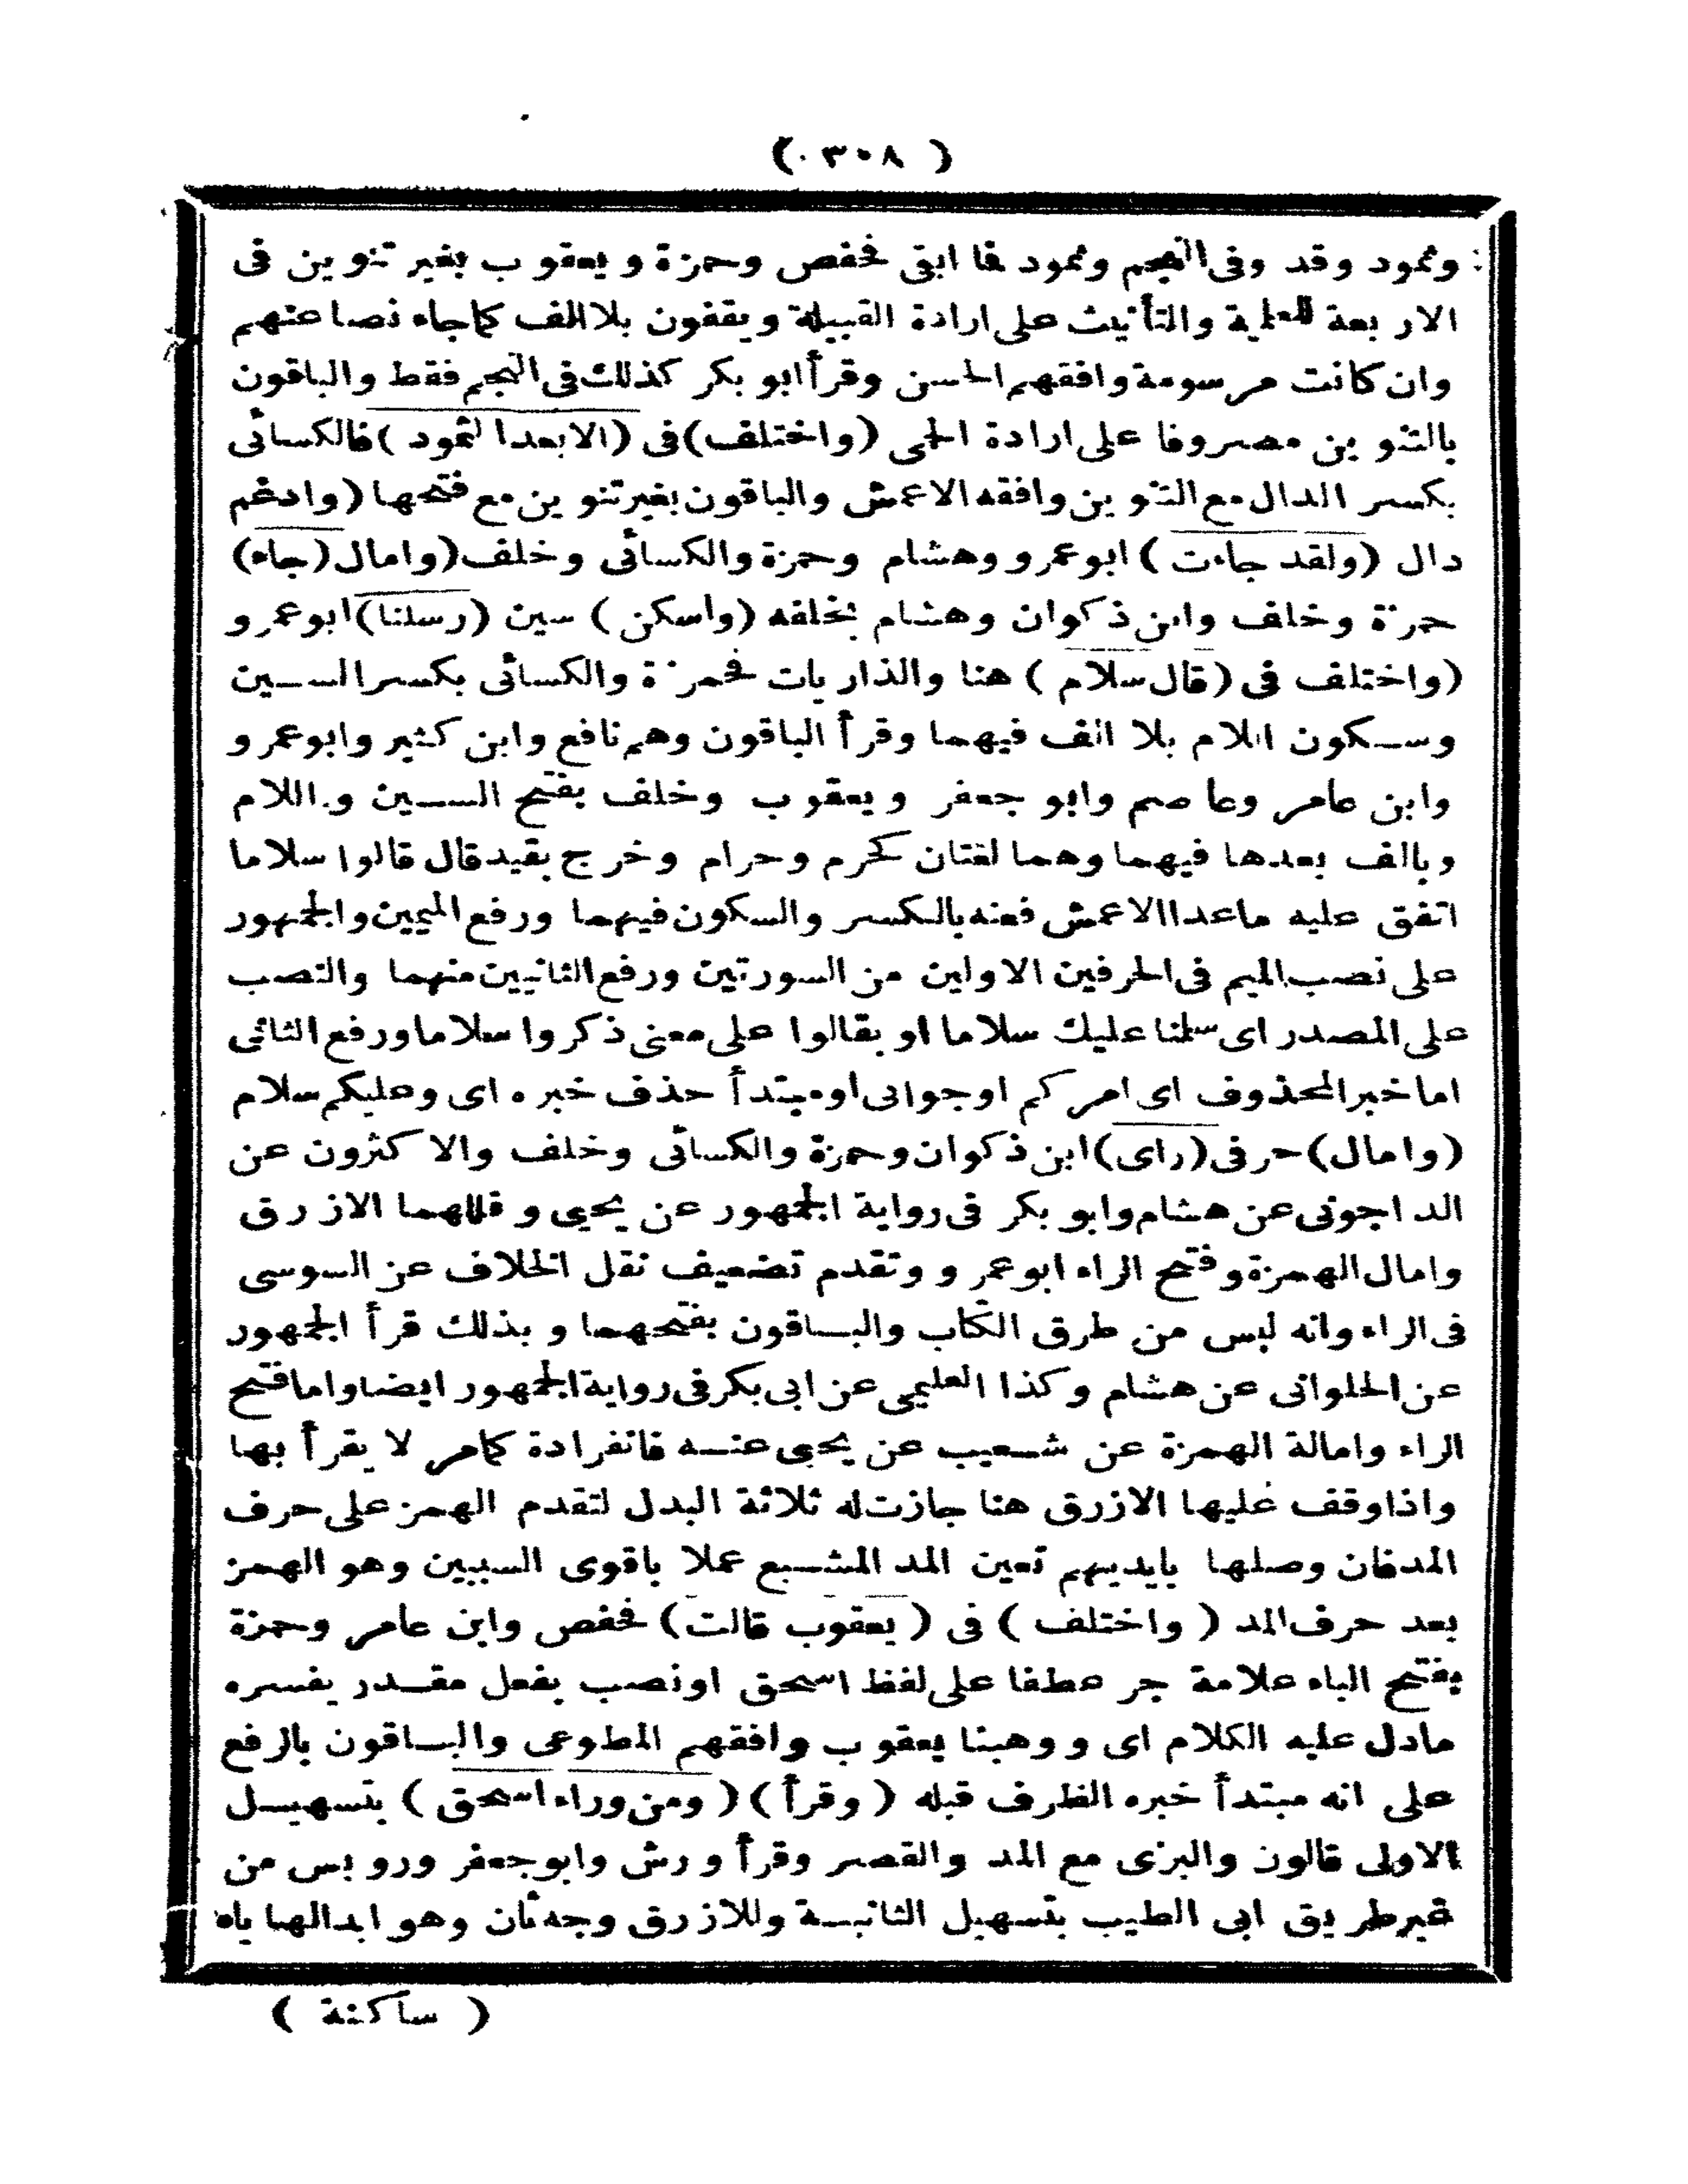 ( ٣٠٨ )
وثمود وقد وفى النجم وثمود فما ابقى فحفص وحمزة ويعقوب بغير تنوين فى
الاربعة للعلمية والتأنيث على ارادة القبيلة ويقفون بلاالف كماجاء نصا عنهم
وان كانت مرسومة وافقهم الحسن وقرأ ابو بكر كذلك فى النجم فقط والباقون
بالتنوين مصروفا على ارادة الحى (واختلف) فى (الابعدا لثمود) فالكسائى
بكسر الدال مع التنوين وافقه الاعمش والباقون بغير تنوين مع فتحها (وادغم
دال (ولقد جاءت) ابوعمرو وهشام وحمزة والكسائى وخلف (وامال (جاء)
حمزة وخلف وابن ذكوان وهشام بخلفه (واسكن) سين (رسلنا) ابوعمرو
(واختلف فى (قال سلام) هنا والذاريات فحمزة والكسائى بكسر السين
وسكون اللام بلا الف فيهما وقرأ الباقون وهم نافع وابن كثير وابوعمرو
وابن عامر وعاصم وابو جعفر ويعقوب وخلف بفتح السين واللام
وبالف بعدها فيهما وهما لغتان كحرم وحرام وخرج بقيد قال قالوا سلاما
اتفق عليه ماعدا الاعمش فعنه بالكسر والسكون فيهما ورفع الميمين والجمهور
على نصب الميم فى الحرفين الاولين من السورتين ورفع الثانيين منهما والنصب
على المصدر اى سلمنا عليك سلاما او بقالوا على معنى ذكروا سلاما ورفع الثانى
اما خبر المحذوف اى امركم اوجوابى اومبتدأ حذف خبره اى وعليكم سلام
(وامال) حرفى (راى) ابن ذكوان وحمزة والكسائى وخلف والاكثرون عن
الداجونى عن هشام وابو بكر فى رواية الجمهور عن يحيى وقللهما الازرق
وامال الهمزة وفتح الراء ابوعمرو وتقدم تضعيف نقل الخلاف عن السوسى
فى الراء وانه ليس من طرق الكتاب والباقون بفتحهما وبذلك قرأ الجمهور
عن الحلوانى عن هشام وكذا العليمى عن ابى بكر فى رواية الجمهور ايضا واما فتح
الراء وامالة الهمزة عن شعيب عن يحيى عنه فانفرادة كمامر لا يقرأ بها
واذا وقف عليها الازرق هنا جازت له ثلاثة البدل لتقدم الهمز على حرف
المد فان وصلها بايديهم تعين المد المشبع عملا باقوى السببين وهو الهمز
بعد حرف المد (واختلف) فى (يعقوب قالت) فحفص وابن عامر وحمزة
بفتح الباء علامة جر عطفا على لفظ اسحق اونصب بفعل مقدر يفسره
مادل عليه الكلام اى ووهبنا يعقوب وافقهم المطوعى والباقون بالرفع
على انه مبتدأ خبره الظرف قبله (وقرأ) (ومن وراء اسحق) بتسهيل
الاولى قالون والبزى مع المد والقصر وقرأ ورش وابوجعفر ورويس من
غير طريق ابى الطيب بتسهيل الثانية وللازرق وجه ثان وهو ابدالها ياء
( ساكنة )